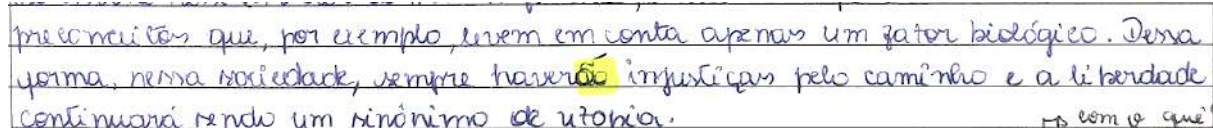 preconceitos que, por exemplo, levem em conta apenas um fator biológico. Dessa
forma, nessa sociedade, sempre haverão injustiças pelo caminho e a liberdade
continuará sendo um sinônimo de utopia.
→ com o quê